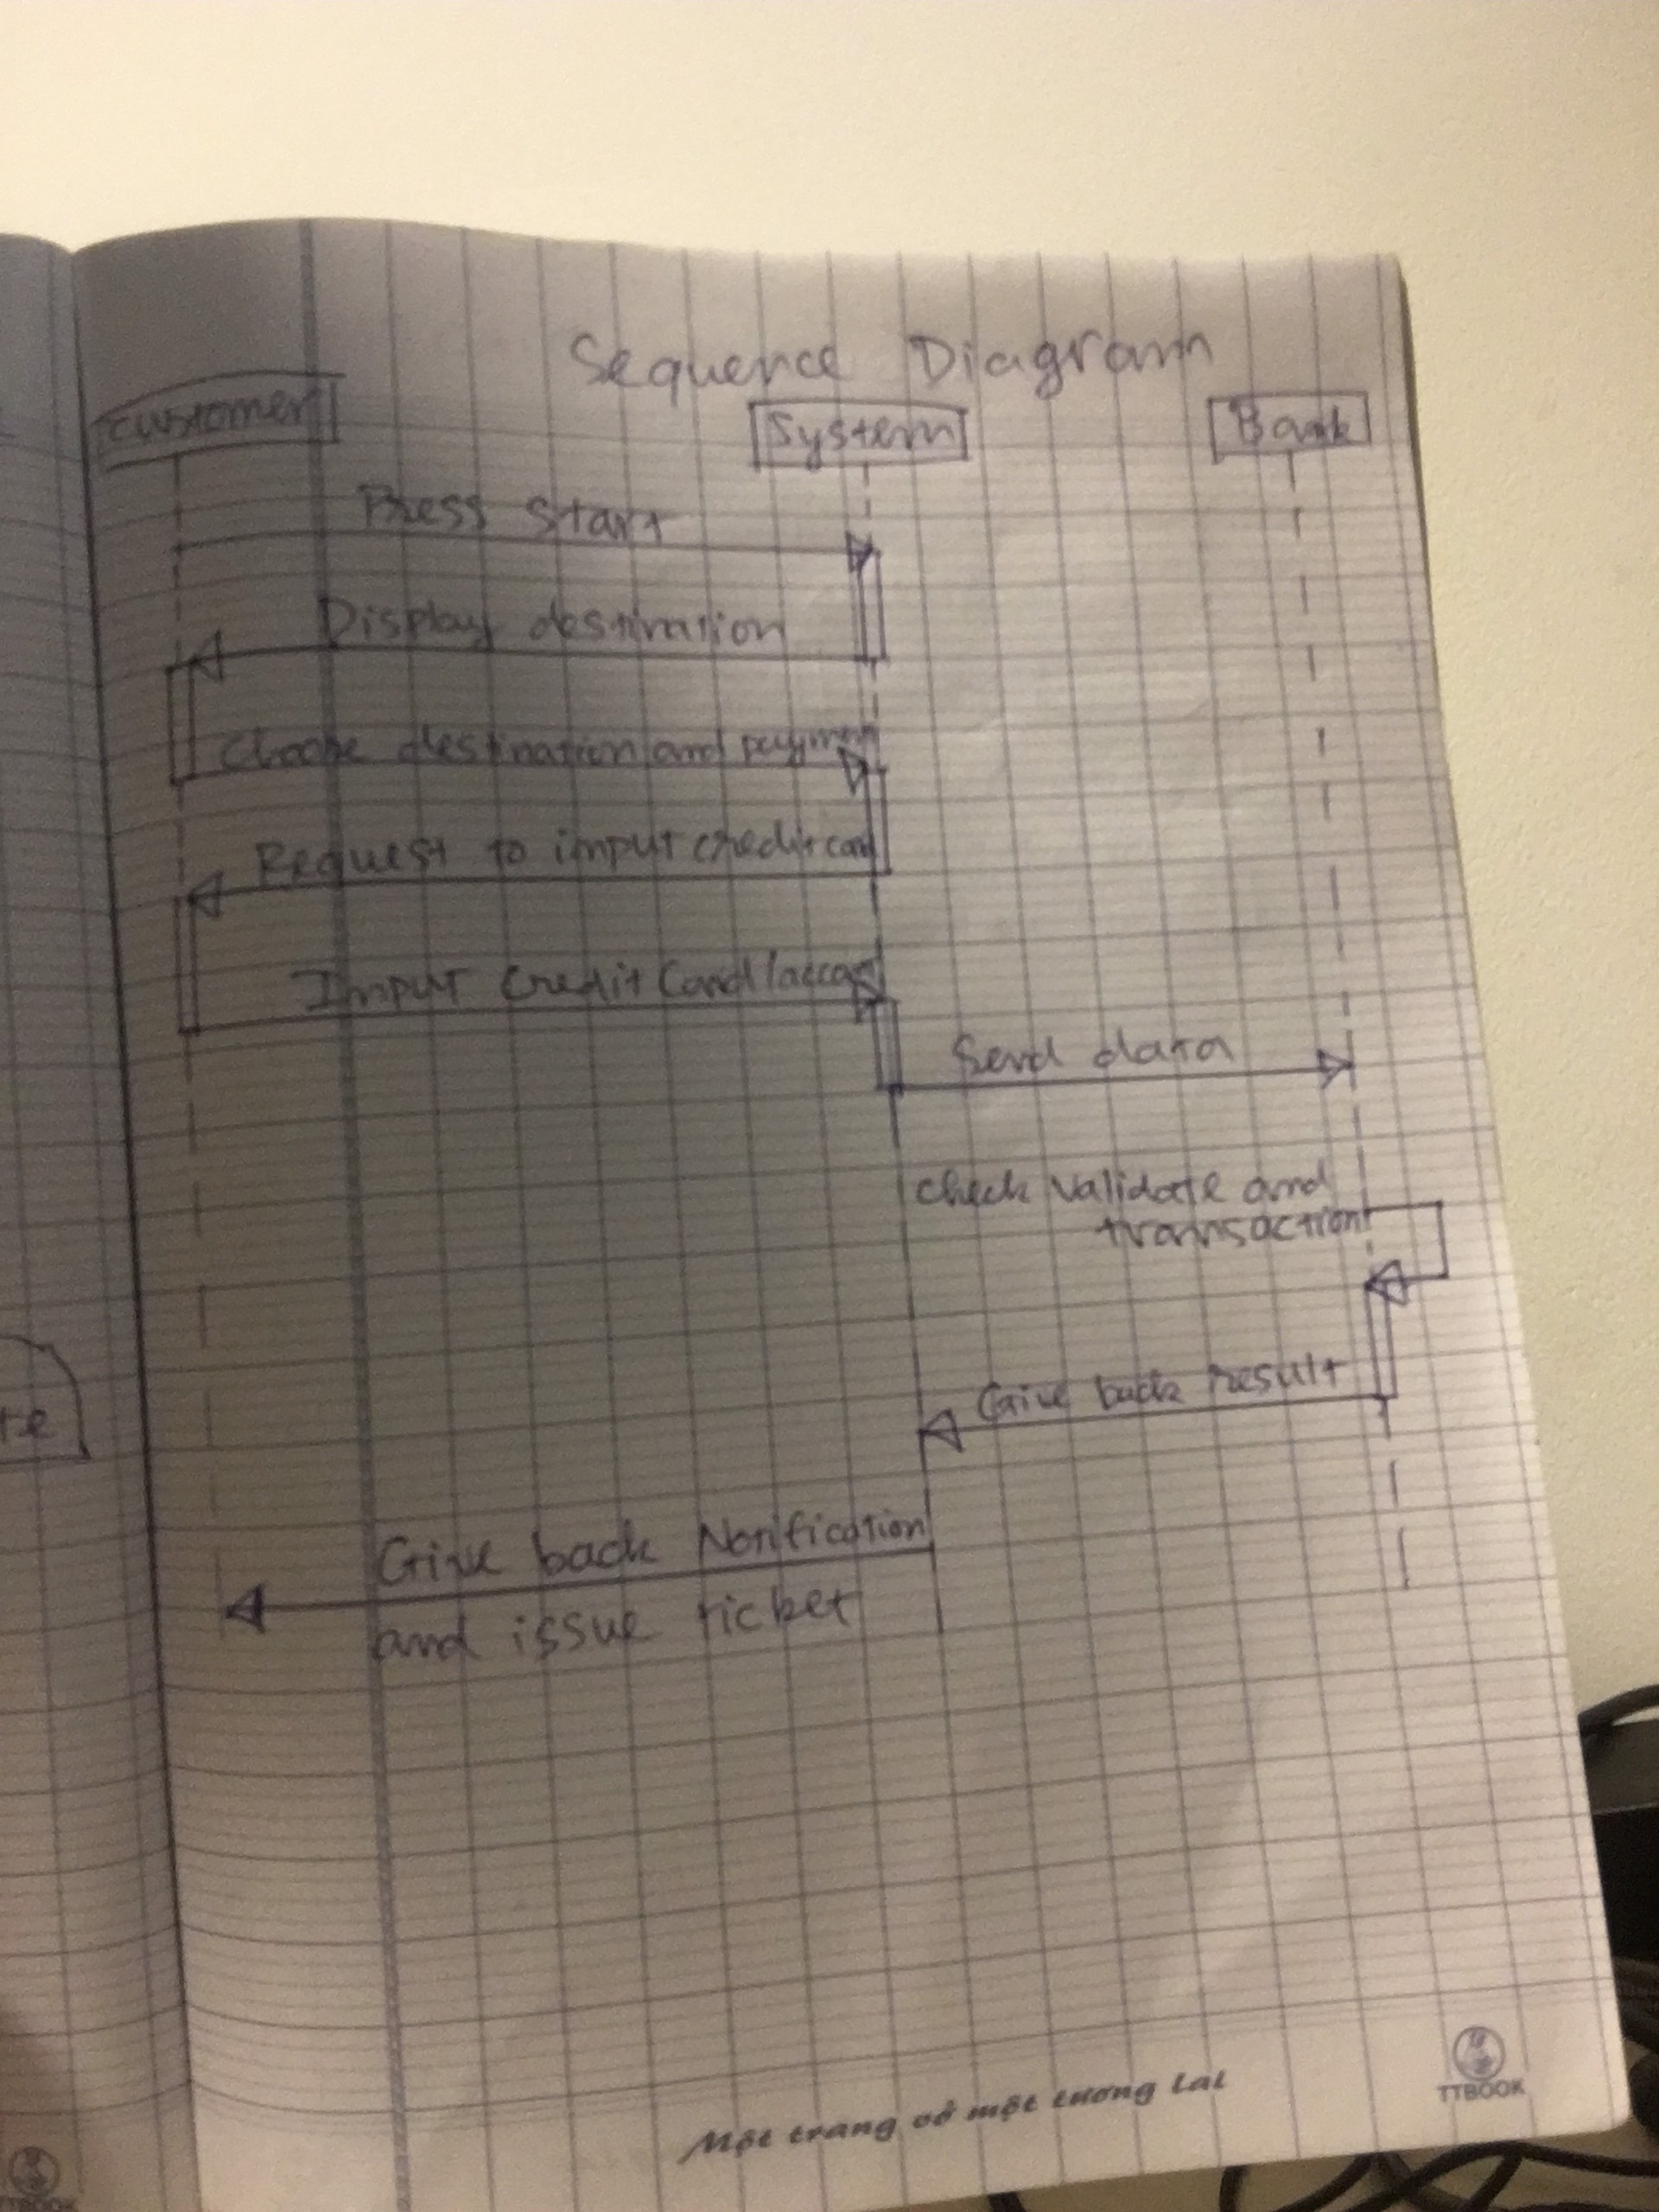 Sequence Diagram
customer
System
Bank
Press start
Display destination
Choose destination and paymen
Request to input credit card
Input Credit Card/accou
Send data
check validate and
transaction
Give back result
te
Give back Notification
and issue ticket
Một trang vở một tương lai
TTBOOK
TTBOOK